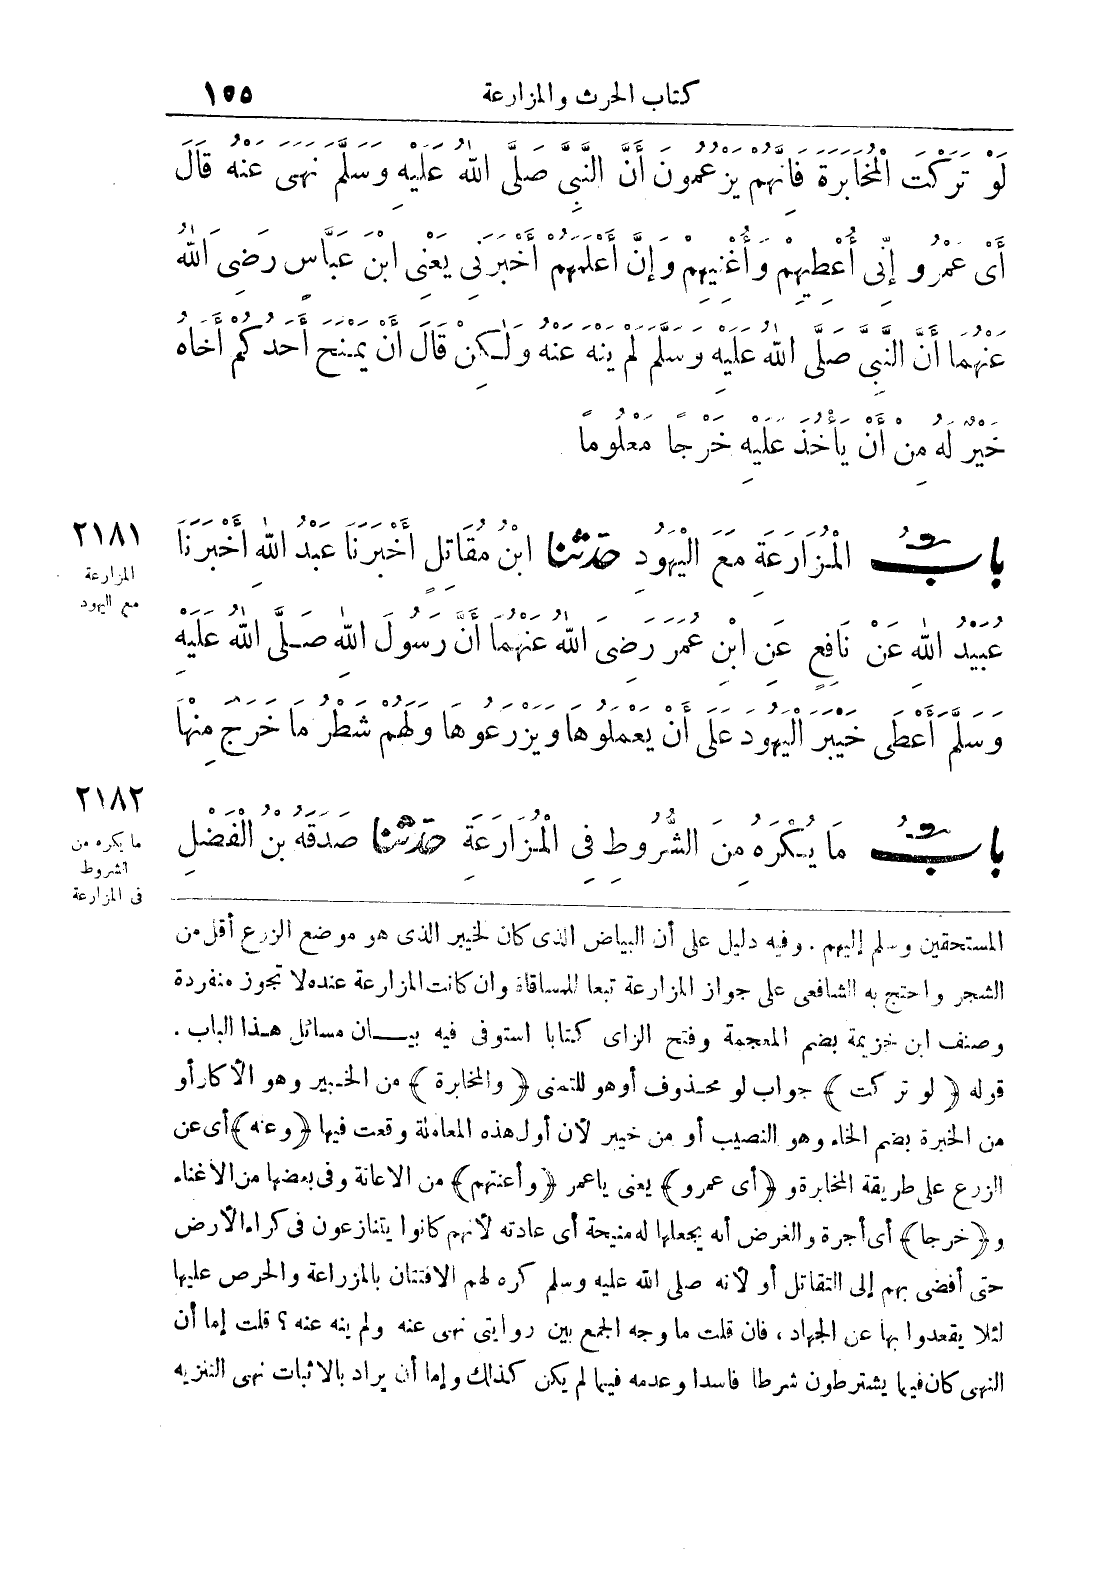 كتاب الحرث والمزارعة ١٥٥
لَوْ تَرَكْتَ الْمُخَابَرَةَ فَإِنَّهُمْ يَزْعُمُونَ أَنَّ النَّبِيَّ صَلَّى اللهُ عَلَيْهِ وَسَلَّمَ نَهَى عَنْهُ قَالَ
أَىْ عَمْرُو إِنِّى أُعْطِيهِمْ وَأُغْنِيهِمْ وَإِنَّ أَعْلَمَهُمْ أَخْبَرَنِى يَعْنِى ابْنَ عَبَّاسٍ رَضِىَ اللهُ
عَنْهُمَا أَنَّ النَّبِىَّ صَلَّى اللهُ عَلَيْهِ وَسَلَّمَ لَمْ يَنْهَ عَنْهُ وَلٰكِنْ قَالَ أَنْ يَمْنَحَ أَحَدُكُمْ أَخَاهُ
خَيْرٌ لَهُ مِنْ أَنْ يَأْخُذَ عَلَيْهِ خَرْجًا مَعْلُومًا
٢١٨١
المزارعة
مع اليهود
بابُ الْمُزَارَعَةِ مَعَ الْيَهُودِ حَدَّثَنَا ابْنُ مُقَاتِلٍ أَخْبَرَنَا عَبْدُ اللهِ أَخْبَرَنَا
عُبَيْدُ اللهِ عَنْ نَافِعٍ عَنِ ابْنِ عُمَرَ رَضِىَ اللهُ عَنْهُمَا أَنَّ رَسُولَ اللهِ صَلَّى اللهُ عَلَيْهِ
وَسَلَّمَ أَعْطَى خَيْبَرَ الْيَهُودَ عَلَى أَنْ يَعْمَلُوهَا وَيَزْرَعُوهَا وَلَهُمْ شَطْرُ مَا خَرَجَ مِنْهَا
٢١٨٢
ما يكره من
الشروط
فى المزارعة
بابُ مَا يُكْرَهُ مِنَ الشُّرُوطِ فِى الْمُزَارَعَةِ حَدَّثَنَا صَدَقَةُ بْنُ الْفَضْلِ
المستحقين وسلم إليهم . وفيه دليل على أن البياض الذى كان لخيبر الذى هو موضع الزرع أقل من
الشجر واحتج به الشافعى على جواز المزارعة تبعا للمساقاة وان كانت المزارعة عنده لا تجوز منفردة
وصنف ابن خزيمة بضم المعجمة وفتح الزاى كتابا استوفى فيه بيان مسائل هذا الباب .
قوله ﴿لو تركت﴾ جواب لو محذوف أو هو للتمنى ﴿والمخابرة﴾ من الخبير وهو الأكار أو
من الخبرة بضم الخاء وهو النصيب أو من خيبر لأن أول هذه المعاملة وقعت فيها ﴿وعنه﴾ أى عن
الزرع على طريقة المخابرة و ﴿أى عمرو﴾ يعنى يا عمر ﴿وأعنتهم﴾ من الاعانة وفى بعضها من الأغناء
و ﴿خرجا﴾ أى أجرة والغرض أنه يجعلها له منيحة أى عادته لأنهم كانوا يتنازعون فى كراء الأرض
حتى أفضى بهم إلى التقاتل أو لأنه صلى الله عليه وسلم كره لهم الافتتان بالمزراعة والحرص عليها
لئلا يقعدوا بها عن الجهاد ، فان قلت ما وجه الجمع بين روايتى نهى عنه ولم ينه عنه ؟ قلت إما أن
النهى كان فيما يشترطون شرطا فاسدا وعدمه فيما لم يكن كذلك وإما أن يراد بالاثبات نهى التنزيه